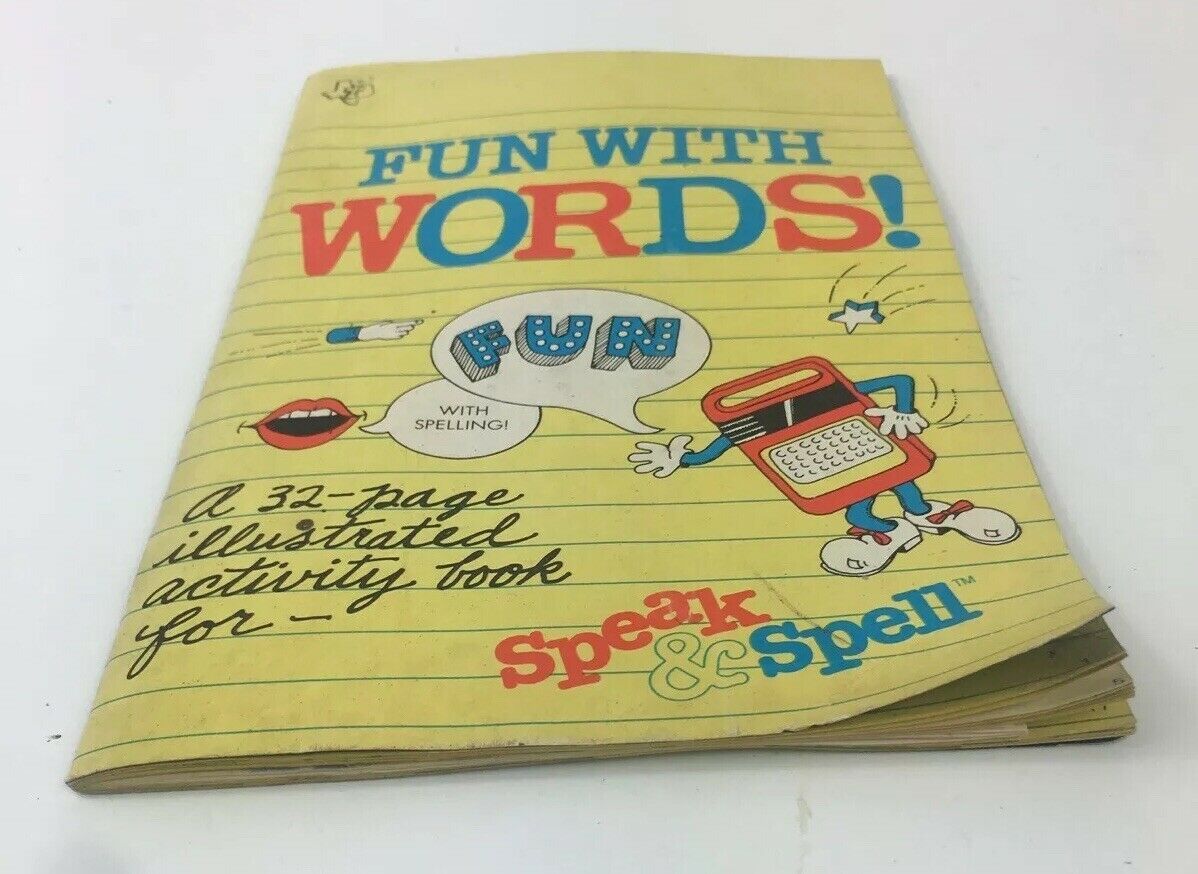 FUN WITH
WORDS!
FUN
WITH
SPELLING!
a 32-page
illustrated
activity book
for-
Speak
& Spell™